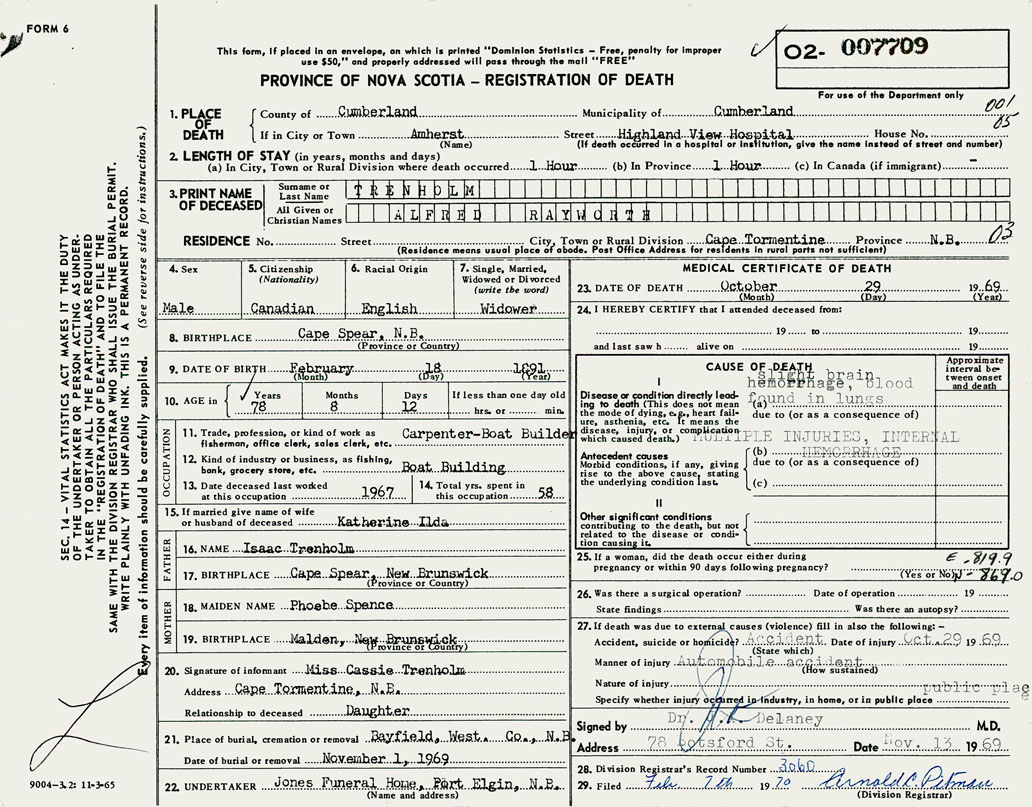 FORM 6
This form, if placed in an envelope, on which is printed "Dominion Statistics – Free, penalty for improper
use $50," and properly addressed will pass through the mail "FREE"
PROVINCE OF NOVA SCOTIA – REGISTRATION OF DEATH
02- 007709
For use of the Department only
001
05
1. PLACE OF DEATH
County of Cumberland Municipality of Cumberland
If in City or Town Amherst Street Highland View Hospital House No.
(Name) (If death occurred in a hospital or institution, give the name instead of street and number)
2. LENGTH OF STAY (in years, months and days)
(a) In City, Town or Rural Division where death occurred 1 Hour (b) In Province 1 Hour (c) In Canada (if immigrant) -
3. PRINT NAME OF DECEASED
Surname or Last Name TRENHOLM
All Given or Christian Names ALFRED RAYWORTH
RESIDENCE No. Street City, Town or Rural Division Cape Tormentine Province N.B. 03
(Residence means usual place of abode. Post Office Address for residents in rural parts not sufficient)
4. Sex
Male
5. Citizenship (Nationality)
Canadian
6. Racial Origin
English
7. Single, Married, Widowed or Divorced (write the word)
Widower
8. BIRTHPLACE Cape Spear, N.B.
(Province or Country)
9. DATE OF BIRTH February 18 1891
(Month) (Day) (Year)
10. AGE in Years Months Days If less than one day old
78 8 12 hrs. or min.
OCCUPATION
11. Trade, profession, or kind of work as fisherman, office clerk, sales clerk, etc. Carpenter-Boat Builder
12. Kind of industry or business, as fishing, bank, grocery store, etc. Boat Building
13. Date deceased last worked at this occupation 1967
14. Total yrs. spent in this occupation 58
15. If married give name of wife or husband of deceased Katherine Ilda
FATHER
16. NAME Isaac Trenholm
17. BIRTHPLACE Cape Spear, New Brunswick
(Province or Country)
MOTHER
18. MAIDEN NAME Phoebe Spence
19. BIRTHPLACE Malden, New Brunswick
(Province or Country)
20. Signature of informant Miss Cassie Trenholm
Address Cape Tormentine, N.B.
Relationship to deceased Daughter
21. Place of burial, cremation or removal Bayfield, West. Co., N.B.
Date of burial or removal November 1, 1969
22. UNDERTAKER Jones Funeral Home, Port Elgin, N.B.
(Name and address)
MEDICAL CERTIFICATE OF DEATH
23. DATE OF DEATH October 29 1969
(Month) (Day) (Year)
24. I HEREBY CERTIFY that I attended deceased from:
19 to 19
and last saw h alive on 19
CAUSE OF DEATH
Approximate interval between onset and death
I
slight brain
hemorrhage, blood
found in lungs
Disease or condition directly leading to death (This does not mean the mode of dying, e.g., heart failure, asthenia, etc. It means the disease, injury, or complication which caused death.)
(a)
due to (or as a consequence of)
MULTIPLE INJURIES, INTERNAL
HEMORRHAGE
Antecedent causes
Morbid conditions, if any, giving rise to the above cause, stating the underlying condition last.
(b)
due to (or as a consequence of)
(c)
II
Other significant conditions
contributing to the death, but not related to the disease or condition causing it.
25. If a woman, did the death occur either during
pregnancy or within 90 days following pregnancy?
(Yes or No)
E - 819.9
N - 869.0
26. Was there a surgical operation? Date of operation 19
State findings Was there an autopsy?
27. If death was due to external causes (violence) fill in also the following: –
Accident, suicide or homicide? Accident Date of injury Oct.29 1969
(State which)
Manner of injury Automobile accident
(How sustained)
Nature of injury
public place
Specify whether injury occurred in industry, in home, or in public place
Signed by Dr. Delaney M.D.
Address 78 Botsford St. Date Nov. 13 1969
28. Division Registrar's Record Number 3060
29. Filed Feb. 7th 1970 Arnold C. Pitman
(Division Registrar)
SEC. 14 – VITAL STATISTICS ACT MAKES IT THE DUTY
OF THE UNDERTAKER OR PERSON ACTING AS UNDER-
TAKER TO OBTAIN ALL THE PARTICULARS REQUIRED
IN THE "REGISTRATION OF DEATH" AND TO FILE THE
SAME WITH THE DIVISION REGISTRAR WHO SHALL ISSUE THE BURIAL PERMIT.
WRITE PLAINLY WITH UNFADING INK. THIS IS A PERMANENT RECORD.
Every item of information should be carefully supplied. (See reverse side for instructions.)
9004-3.2: 11-3-65